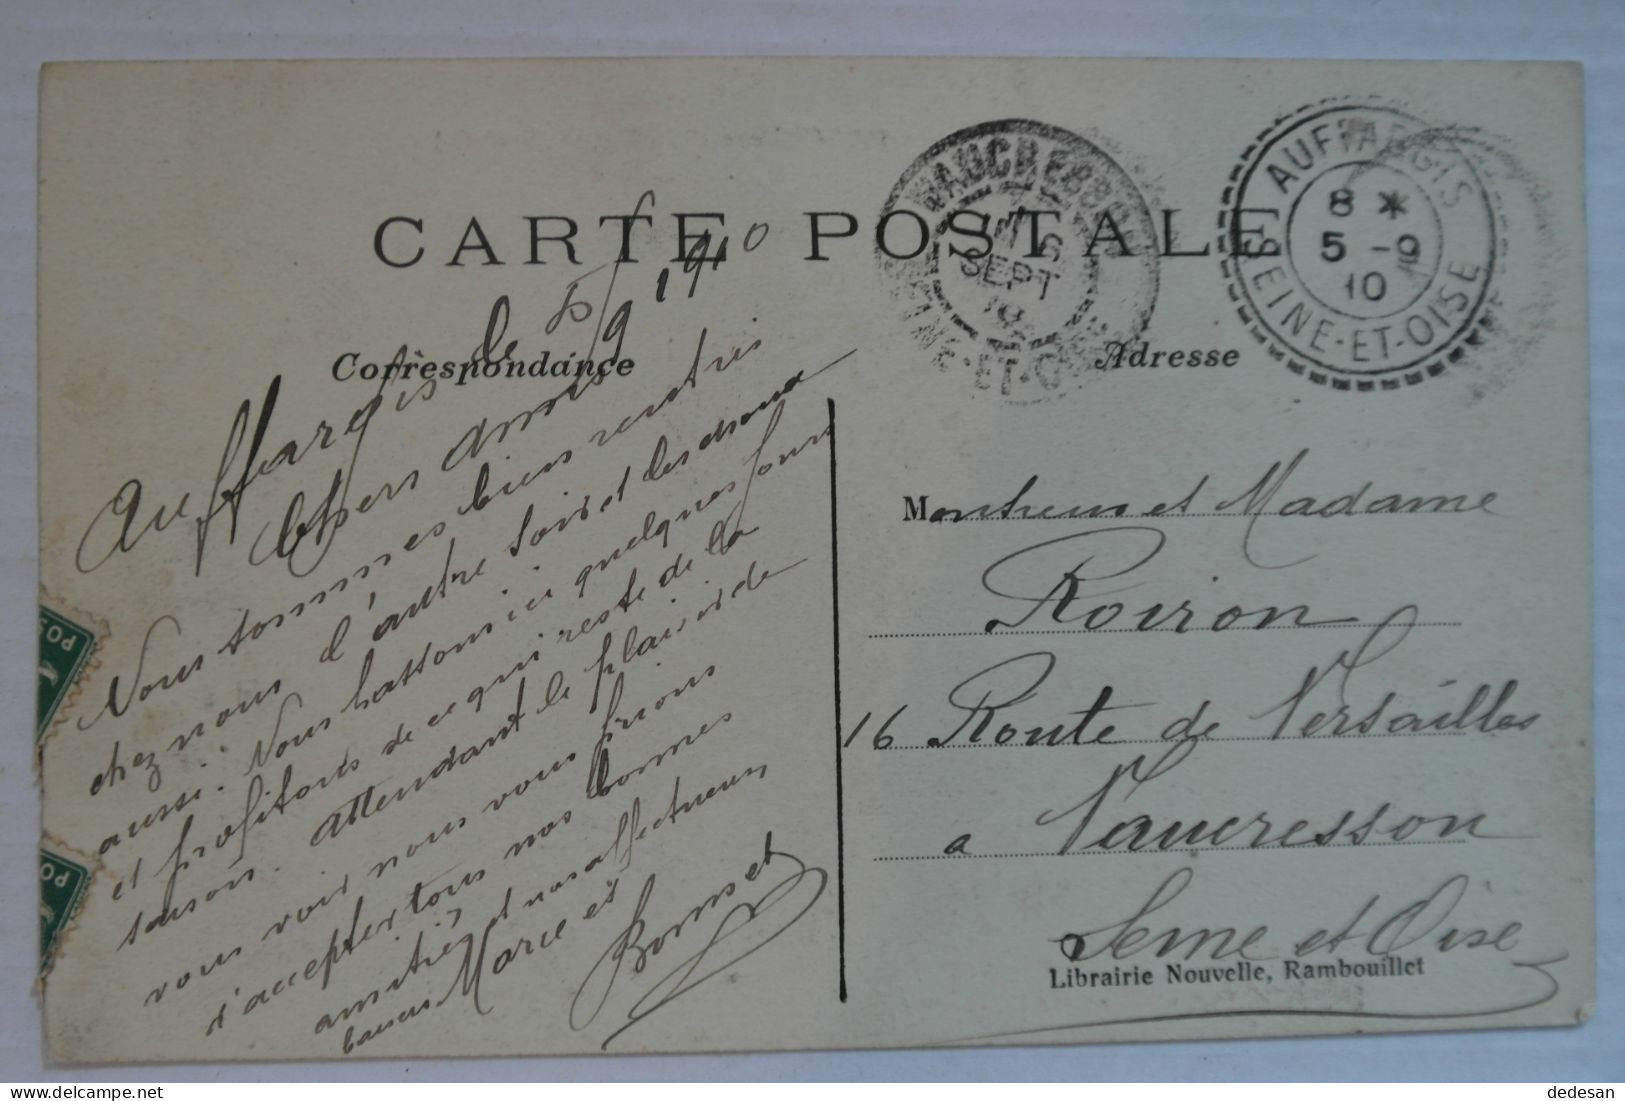 CARTE POSTALE
Correspondance
Adresse
VAUCRESSON
6
SEPT
SEINE-ET-OISE
AUFFARGIS
8 *
5 -9
10
SEINE-ET-OISE
Auffargis le 5/9 1910
Chers amis
Nous sommes bien rentrés
chez nous l'autre soir et les
aussi. Nous ici quelques jours
et profitons de ce qui reste de la
saison. attendant le plaisir de
vous voir nous vous prions
d'accepter tous nos bonnes
amitiés et nos affectueux
baisers Marie et
Monsieur et Madame
Roiron
16 Route de Versailles
a Vaucresson
Seine et Oise
Librairie Nouvelle, Rambouillet
dedesan